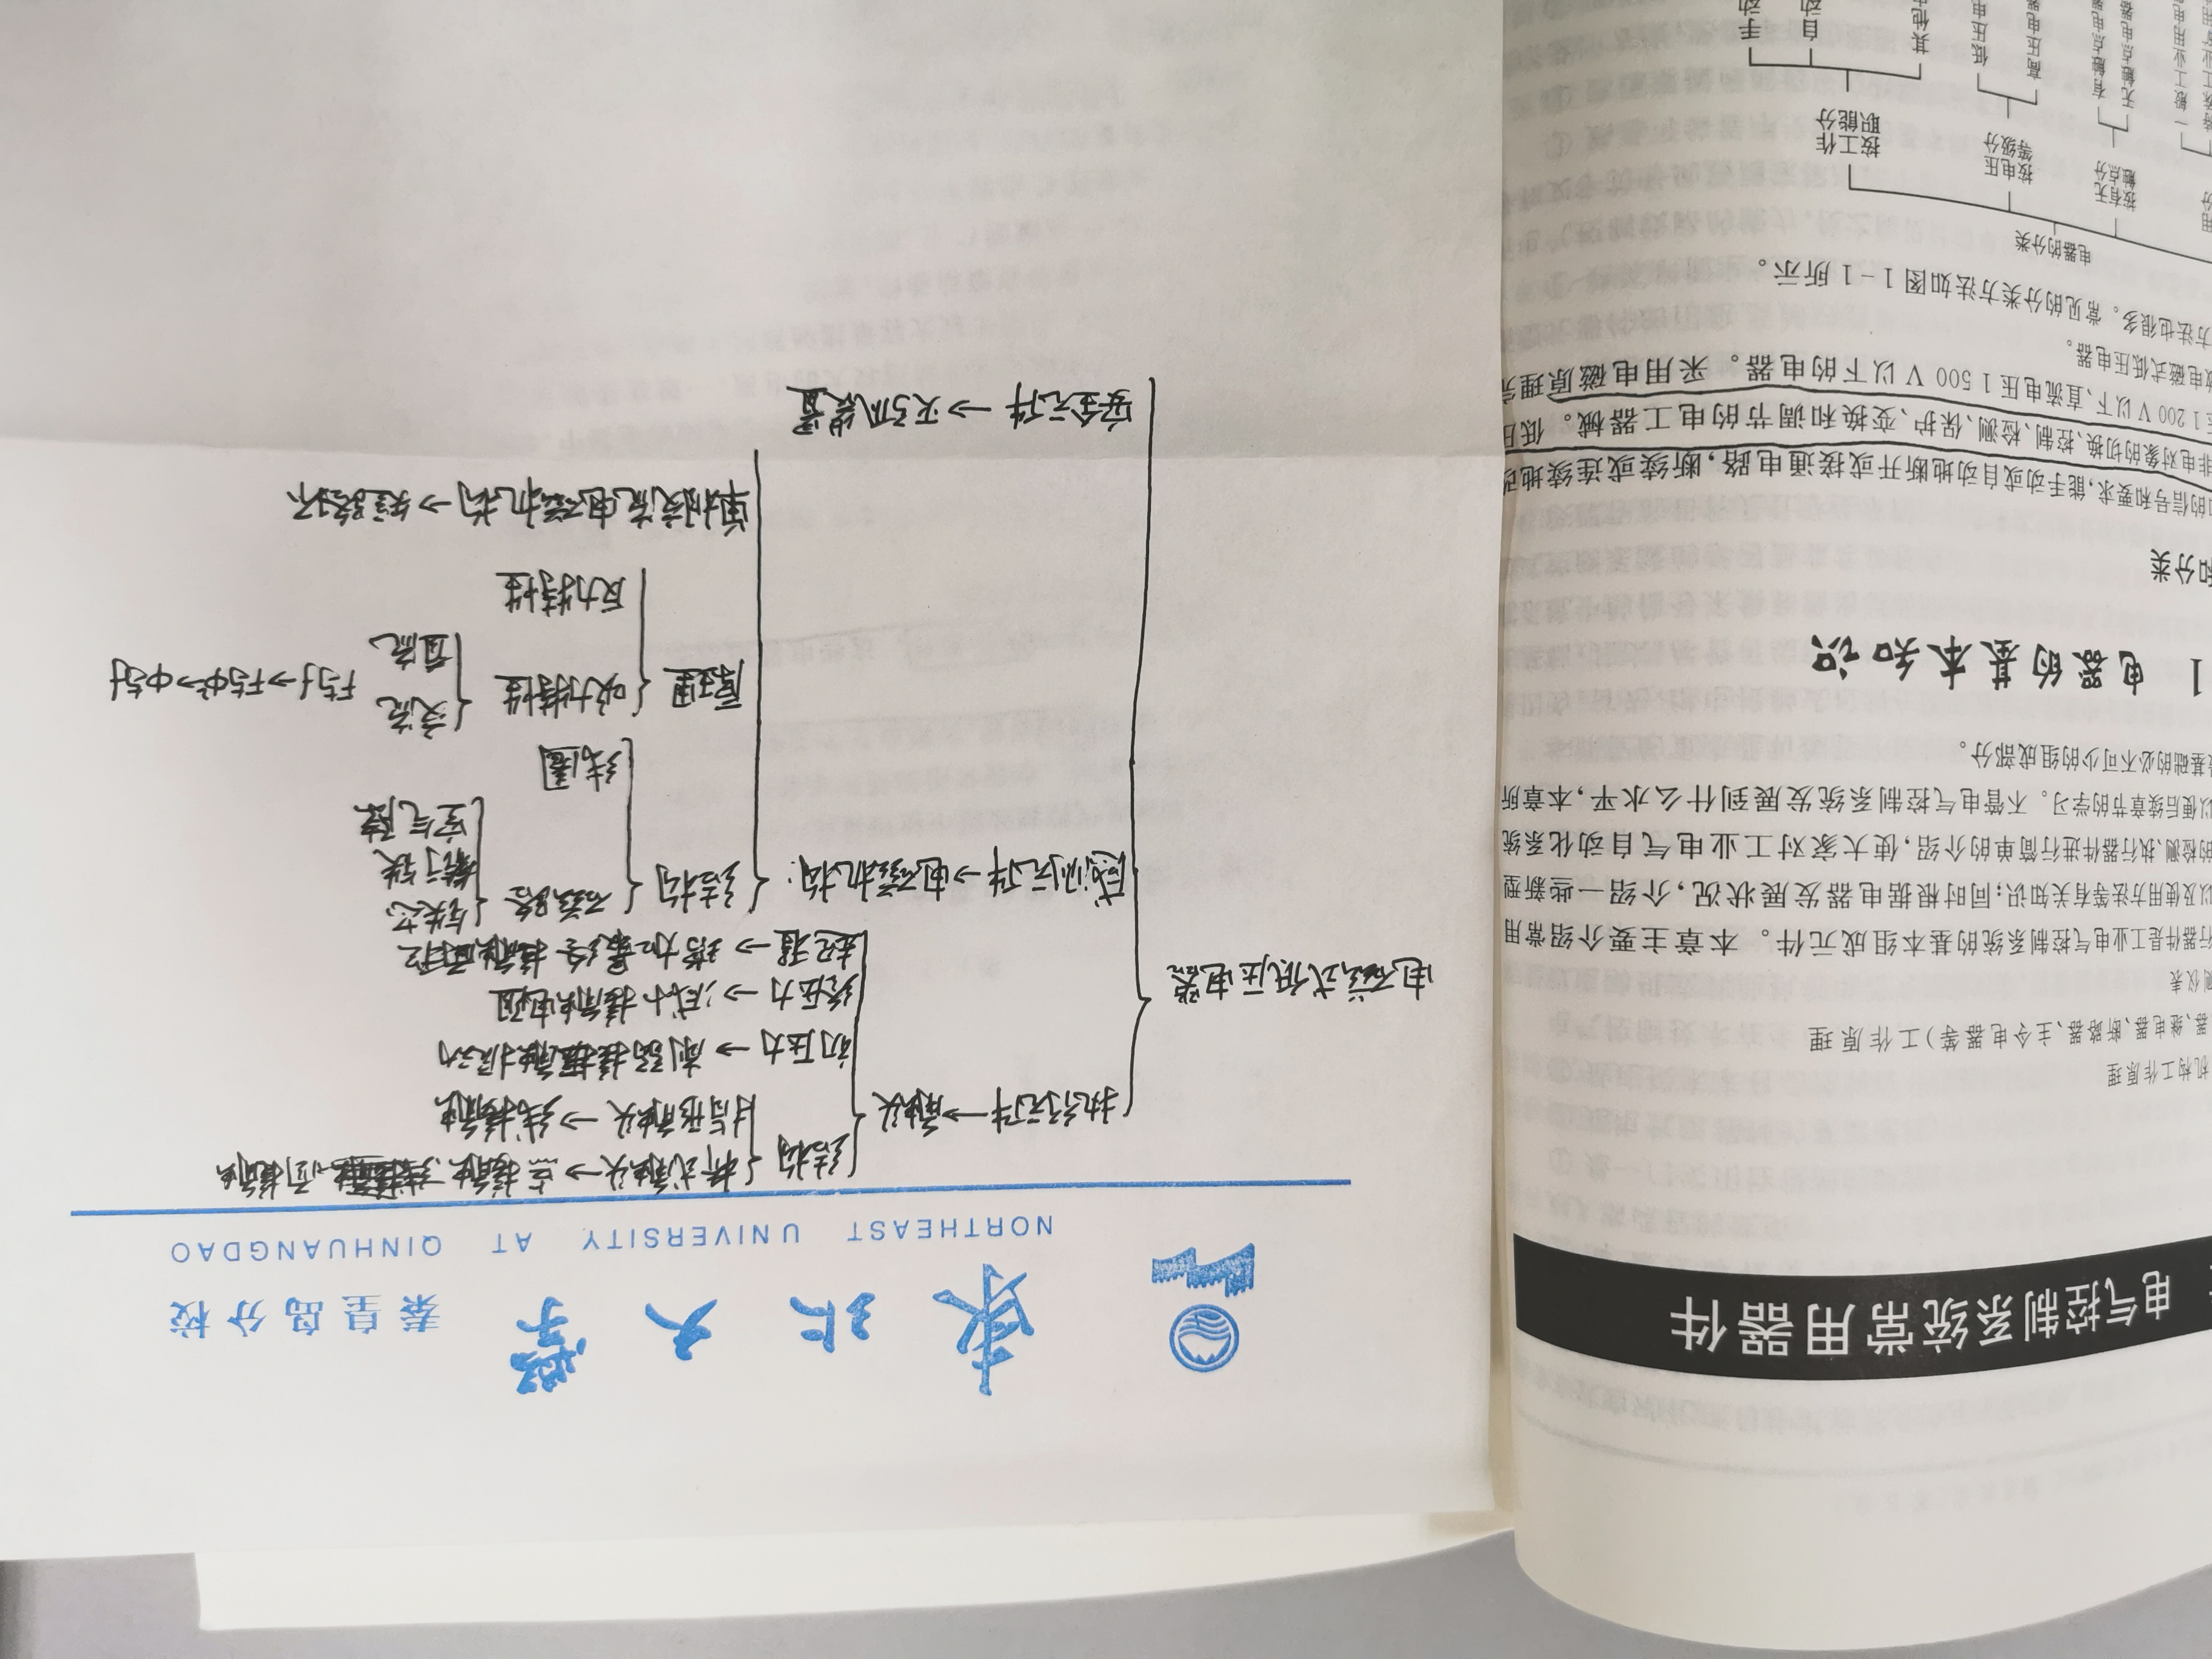 电气控制系统常用器件
机构工作原理
器、继电器、断路器、主令电器等)工作原理
测仪表
行器件是工业电气控制系统的基本组成元件。本章主要介绍常用
以及使用方法等有关知识;同时根据电器发展状况,介绍一些新型
的检测、执行器件进行简单的介绍,使大家对工业电气自动化系统
以便后续章节的学习。不管电气控制系统发展到什么水平,本章所
最基础的必不可少的组成部分。
1 电器的基本知识
和分类
的信号和要求,能手动或自动地断开或接通电路,断续或连续地改
非电对象的切换、控制、检测、保护、变换和调节的电工器械。低压
压1 200 V以下、直流电压1 500 V以下的电器。采用电磁原理完
做电磁式低压电器。
方法也很多。常见的分类方法如图1-1所示。
电器的分类
按有无触点分
按电压等级分
按工作职能分
一般工业用电
无触点电器
有触点电器
高压电器
低压电
其他
自动
手动
東北大學 秦皇岛分校
NORTHEAST UNIVERSITY AT QINHUANGDAO
电磁式低压电器
执行元件→触头
结构
桥式触头→点接触、面接触
指形触头→线接触
初压力→削弱接触振动
终压力→减小接触电阻
超程→增加最终接触面积
感测元件→电磁机构:
结构
磁路
铁芯
衔铁
空气隙
线圈
原理
吸力特性
交流
直流
F与f→F与Φ²→Φ与f
反力特性
单相交流电磁机构→短路环
安全元件→灭弧装置